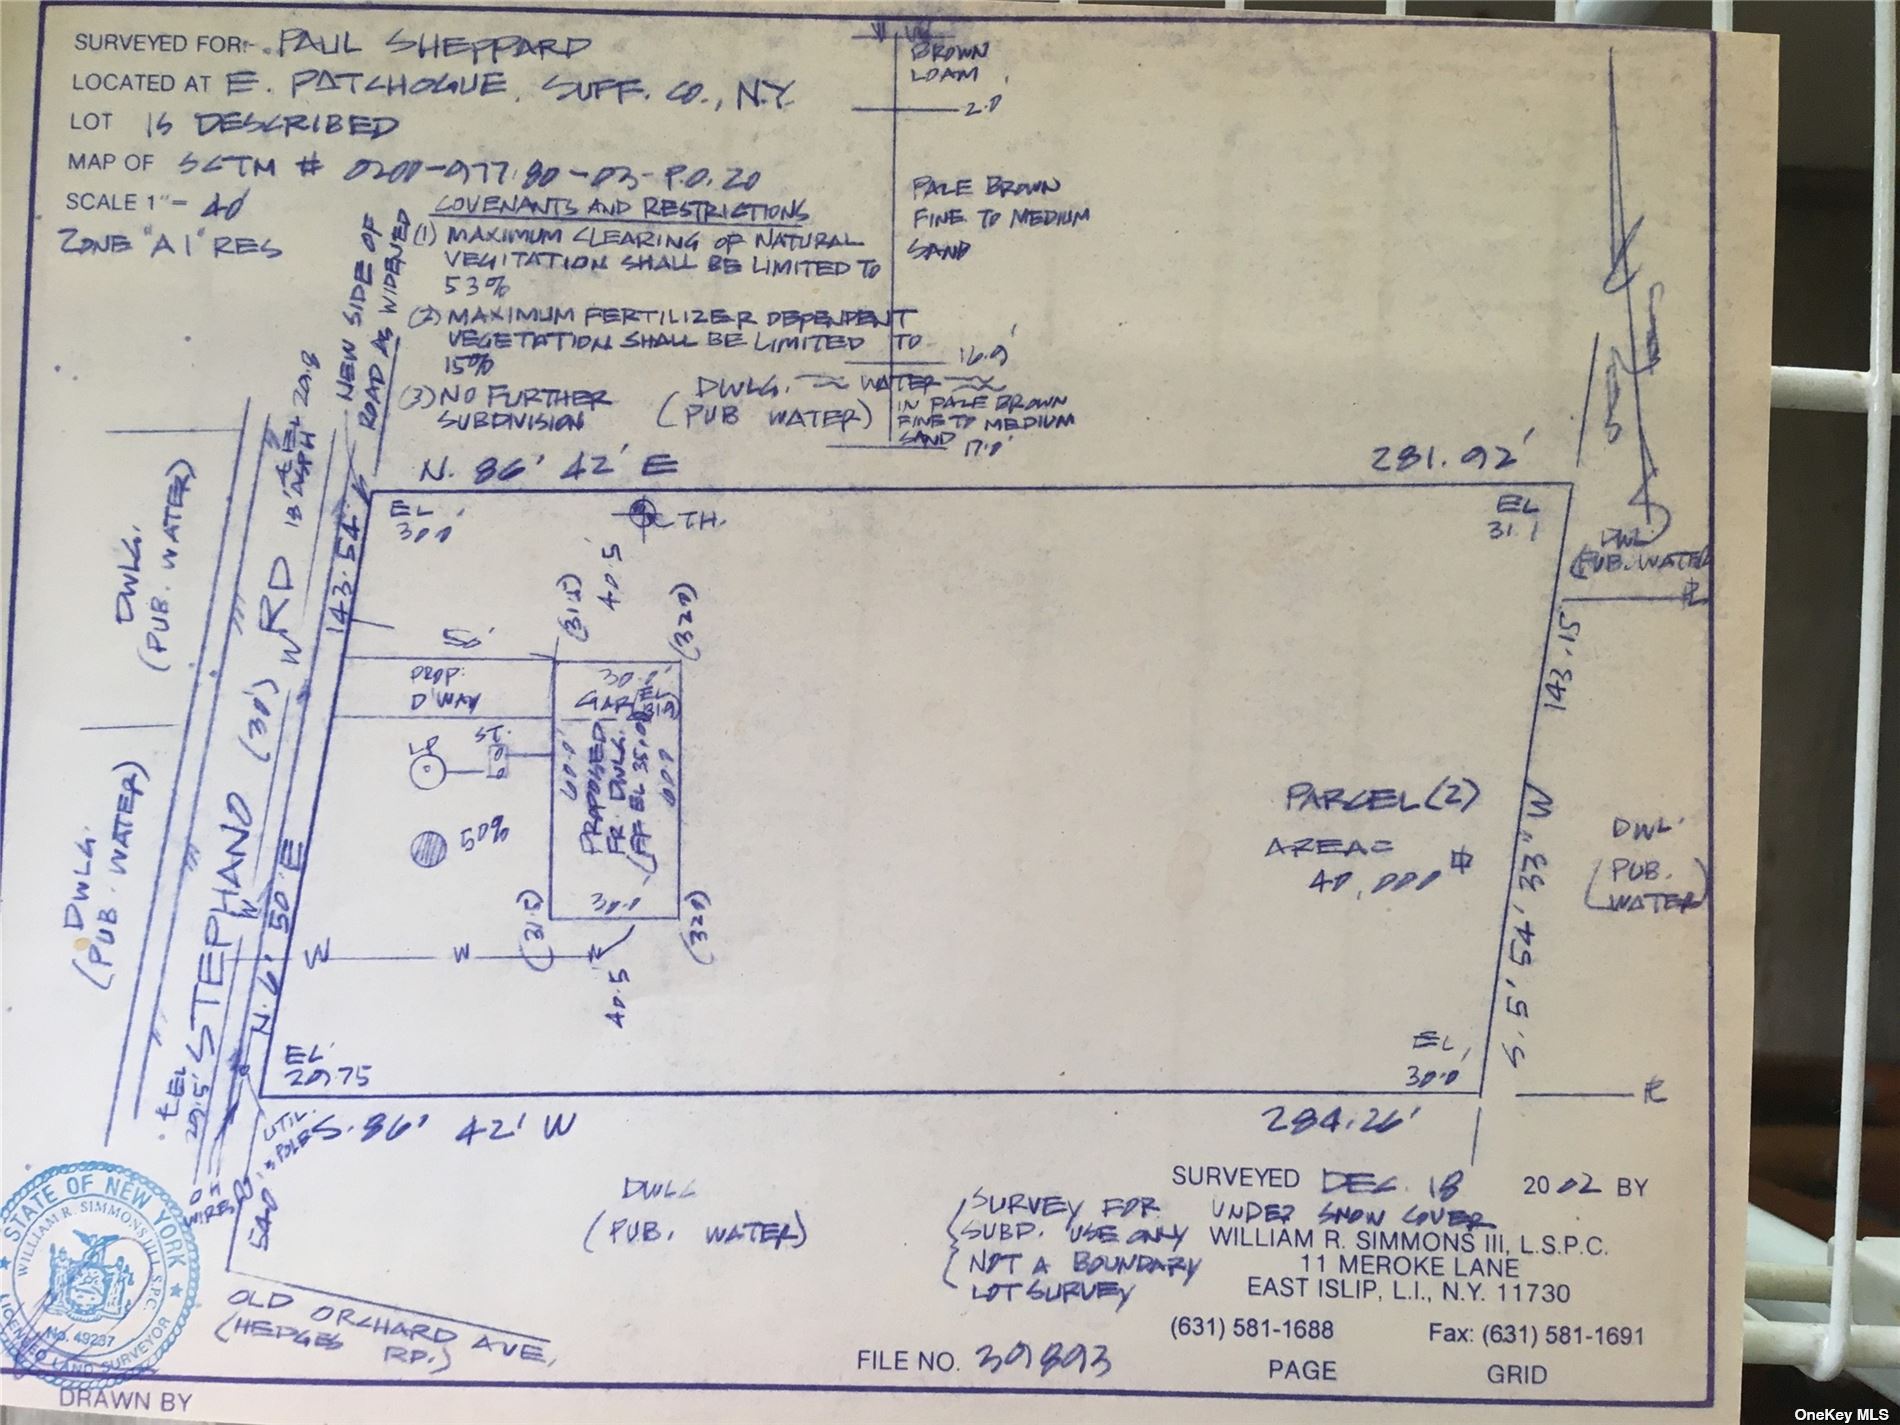 SURVEYED FOR:- PAUL SHEPPARD
LOCATED AT E. PATCHOGUE, SUFF. CO., N.Y.
LOT IS DESCRIBED
MAP OF SCTM # 0200-977.80-03-P.O.20
SCALE 1"- 40'
ZONE "A1" RES
COVENANTS AND RESTRICTIONS
(1) MAXIMUM CLEARING OF NATURAL
VEGITATION SHALL BE LIMITED TO
53%
(2) MAXIMUM FERTILIZER DEPENDENT
VEGETATION SHALL BE LIMITED TO
15%
(3) NO FURTHER
SUBDIVISION
BROWN
LOAM
2.0
PALE BROWN
FINE TO MEDIUM
SAND
16.9'
WATER
IN PALE BROWN
FINE TO MEDIUM
SAND
17.0'
DWLG.
(PUB WATER)
NEW SIDE OF
ROAD AS WIDENED
N. 86° 42' E
281.92'
DWLG.
(PUB. WATER)
DWLG.
(PUB. WATER)
STEPHANO RD
(30')
143.54'
N. 6° 50' E
EL
30.0'
T.H.
EL
31.1
DWL
(PUB. WATER
143.15'
S. 5° 54' 33" W
DWL
(PUB.
WATER)
40.5'
(31.5)
(32.0)
50'
PROP.
D'WAY
30.0'
GAR
(EL
31.9)
LP
ST.
50%
60.0'
PROPOSED
FR. DWLG.
(FF EL 35.0)
60.0
30.0
(31.5)
(32.0)
W
W
40.5
PARCEL (2)
AREA=
40,000
EL
29.75
EL
30.0'
S. 86° 42' W
284.26'
UTIL.
POLE
OH
WIRES
540'
OLD ORCHARD AVE,
(HEDGES
RD.)
DWLG
(PUB. WATER)
SURVEY FOR
SUBD. USE ONLY
NOT A BOUNDARY
LOT SURVEY
SURVEYED DEC. 18 2002 BY
UNDER SNOW COVER
WILLIAM R. SIMMONS III, L.S.P.C.
11 MEROKE LANE
EAST ISLIP, L.I., N.Y. 11730
(631) 581-1688 Fax: (631) 581-1691
FILE NO. 39893 PAGE GRID
STATE OF NEW YORK
WILLIAM R. SIMMONS III L.S.P.C.
No. 49237
LICENSED LAND SURVEYOR
DRAWN BY
OneKey MLS